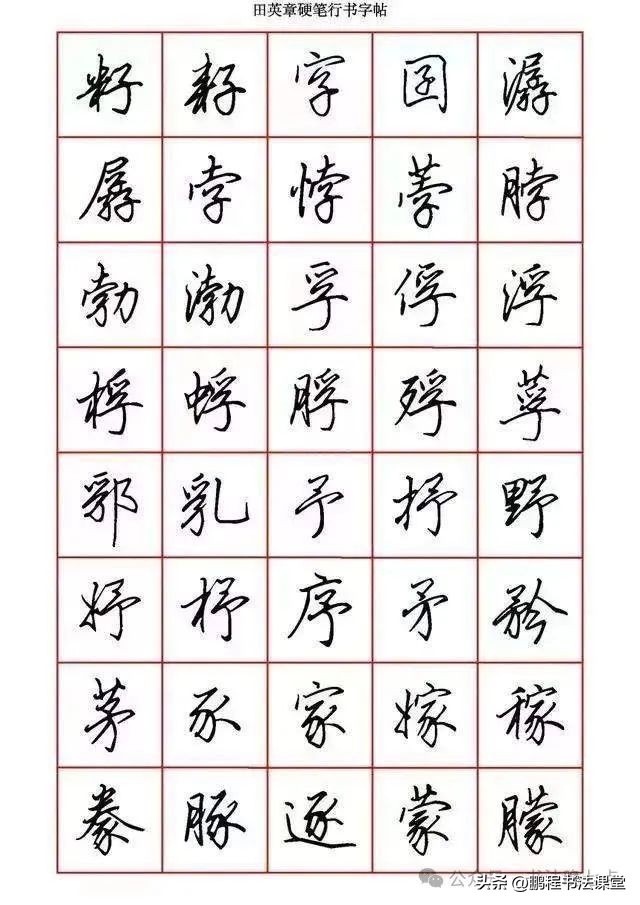 田英章硬笔行书字帖
籽 耔 字 囝 潺
孱 孛 悖 荸 脖
勃 渤 孚 俘 浮
桴 蜉 脬 殍 莩
郛 乳 予 抒 野
妤 杼 序 矛 矜
茅 豕 家 嫁 稼
豢 豚 逐 蒙 朦
公众号
头条 @鹏程书法课堂